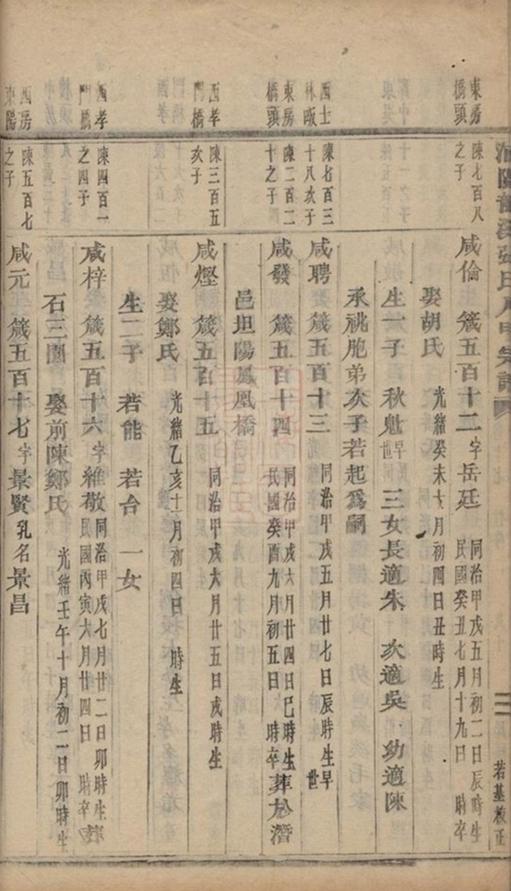 東房橋頭
陳七百八之子
咸倫 箴五百十二 字岳廷 同治甲戌五月初二日辰時生 民國癸丑七月十九日 時卒
娶胡氏 光緒癸未六月初四日丑時生
生一子 秋魁早世 三女長適朱 次適吳 幼適陳
承祧胞弟次子若起爲嗣
西士林畈
陳七百三十八次子
咸聘 箴五百十三 同治甲戌五月廿七日辰時生早世
東房橋頭
陳二百二十之子
咸發 箴五百十四 同治甲戌六月廿四日巳時生 民國癸酉九月初五日 時卒 葬於潛
邑坦陽鳳凰橋
西孝門橋
陳三百五次子
咸煙 箴五百十五 同治甲戌六月廿五日戌時生
娶鄭氏 光緒乙亥十二月初四日 時生
生二子 若能 若合 一女
西孝門橋
陳四百一之四子
咸梓 箴五百十六 字維敬 同治甲戌七月廿二日卯時生 民國丙寅六月廿四日 時卒 葬
石三園 娶前陳鄭氏 光緒壬午十月初二日卯時生
西房東陽
陳五百七之子
咸元 箴五百十七 字景賢 乳名景昌
若基校正